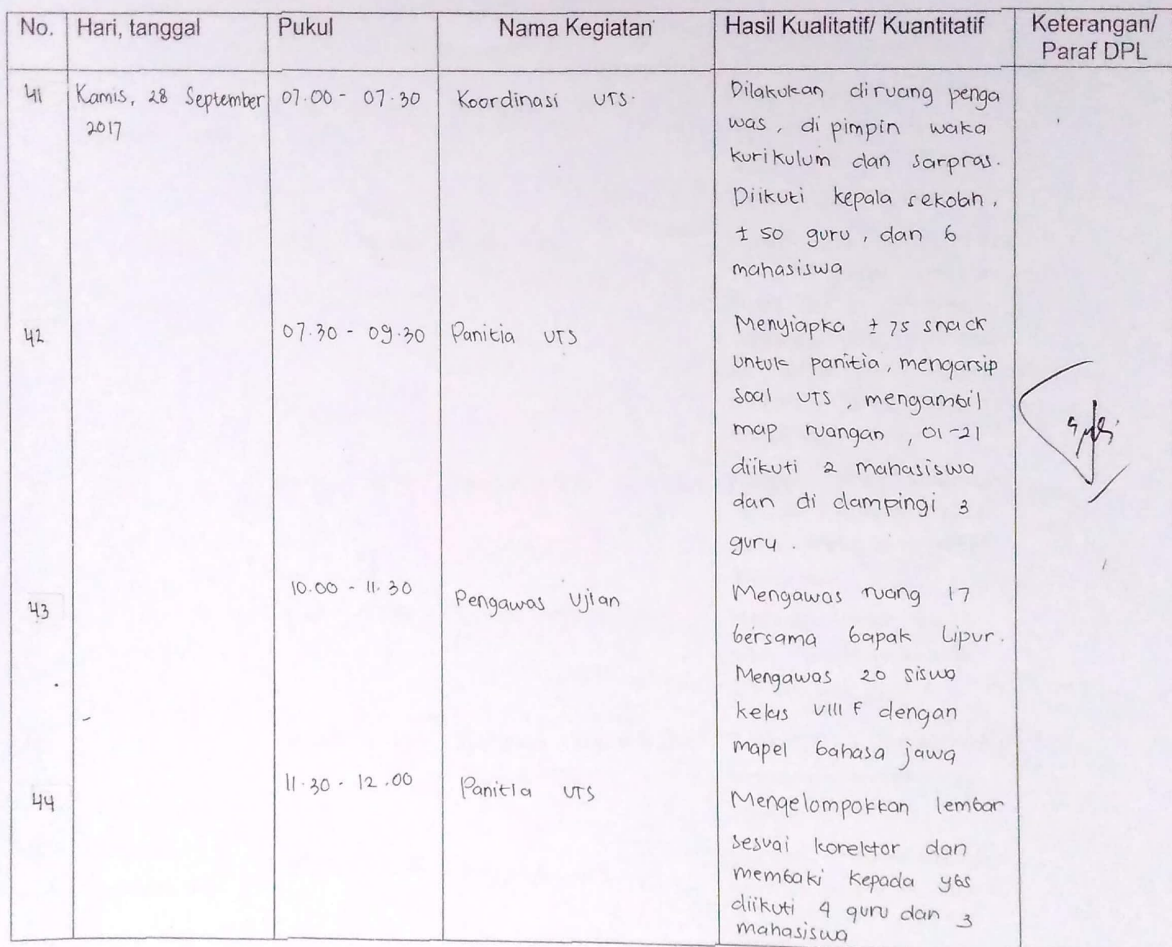 No. Hari, tanggal Pukul Nama Kegiatan Hasil Kualitatif/ Kuantitatif Keterangan/
Paraf DPL
41 Kamis, 28 September 07.00 - 07.30 Koordinasi UTS. Dilakukan diruang penga
2017 was, di pimpin waka
kurikulum dan sarpras.
Diikuti kepala sekolah,
± 50 guru, dan 6
mahasiswa
42 07.30 - 09.30 Panitia UTS Menyiapka ± 75 snack
untuk panitia, mengarsip
soal UTS, mengambil
map ruangan, 01-21
diikuti 2 mahasiswa
dan di dampingi 3
guru.
43 10.00 - 11.30 Pengawas Ujian Mengawas ruang 17
bersama bapak Lipur.
Mengawas 20 siswa
kelas VIII F dengan
mapel bahasa jawa
44 11.30 - 12.00 Panitia UTS Mengelompokkan lembar
sesuai korektor dan
membaki kepada ybs
diikuti 4 guru dan 3
mahasiswa